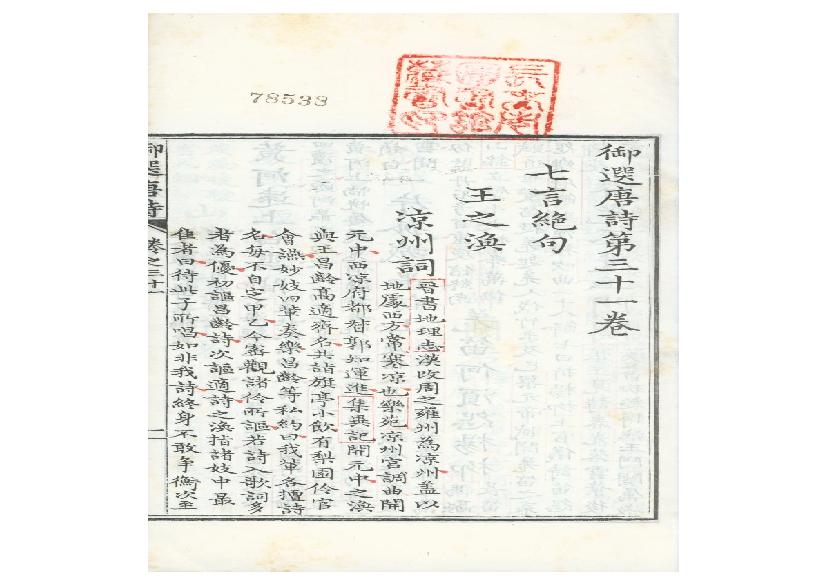 78533
御選唐詩第三十一卷
七言絶句
王之渙
涼州詞
晉書地理志漢改周之雍州為涼州蓋以
地處西方常寒涼也樂苑涼州宮調曲開
元中西涼府都督郭知運進集異記開元中之渙
與王昌齡高適齊名共詣旗亭小飲有梨園伶官
會讌妙妓四輩奏樂昌齡等私約曰我輩各擅詩
名每不自定甲乙今密觀諸伶所謳若詩入歌詞多
者為優初謳昌齡詩次謳適詩之渙指諸妓中最
佳者曰待此子所唱如非我詩終身不敢爭衡次至
御選唐詩
卷之三十一
一